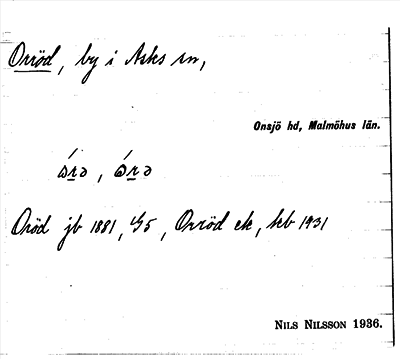 Orröd, by i Asks sn,
Onsjö hd, Malmöhus län.
ó̱rə, ó̱rə
Oröd jb 1881, Orröd ek, hb 1931
NILS NILSSON 1936.